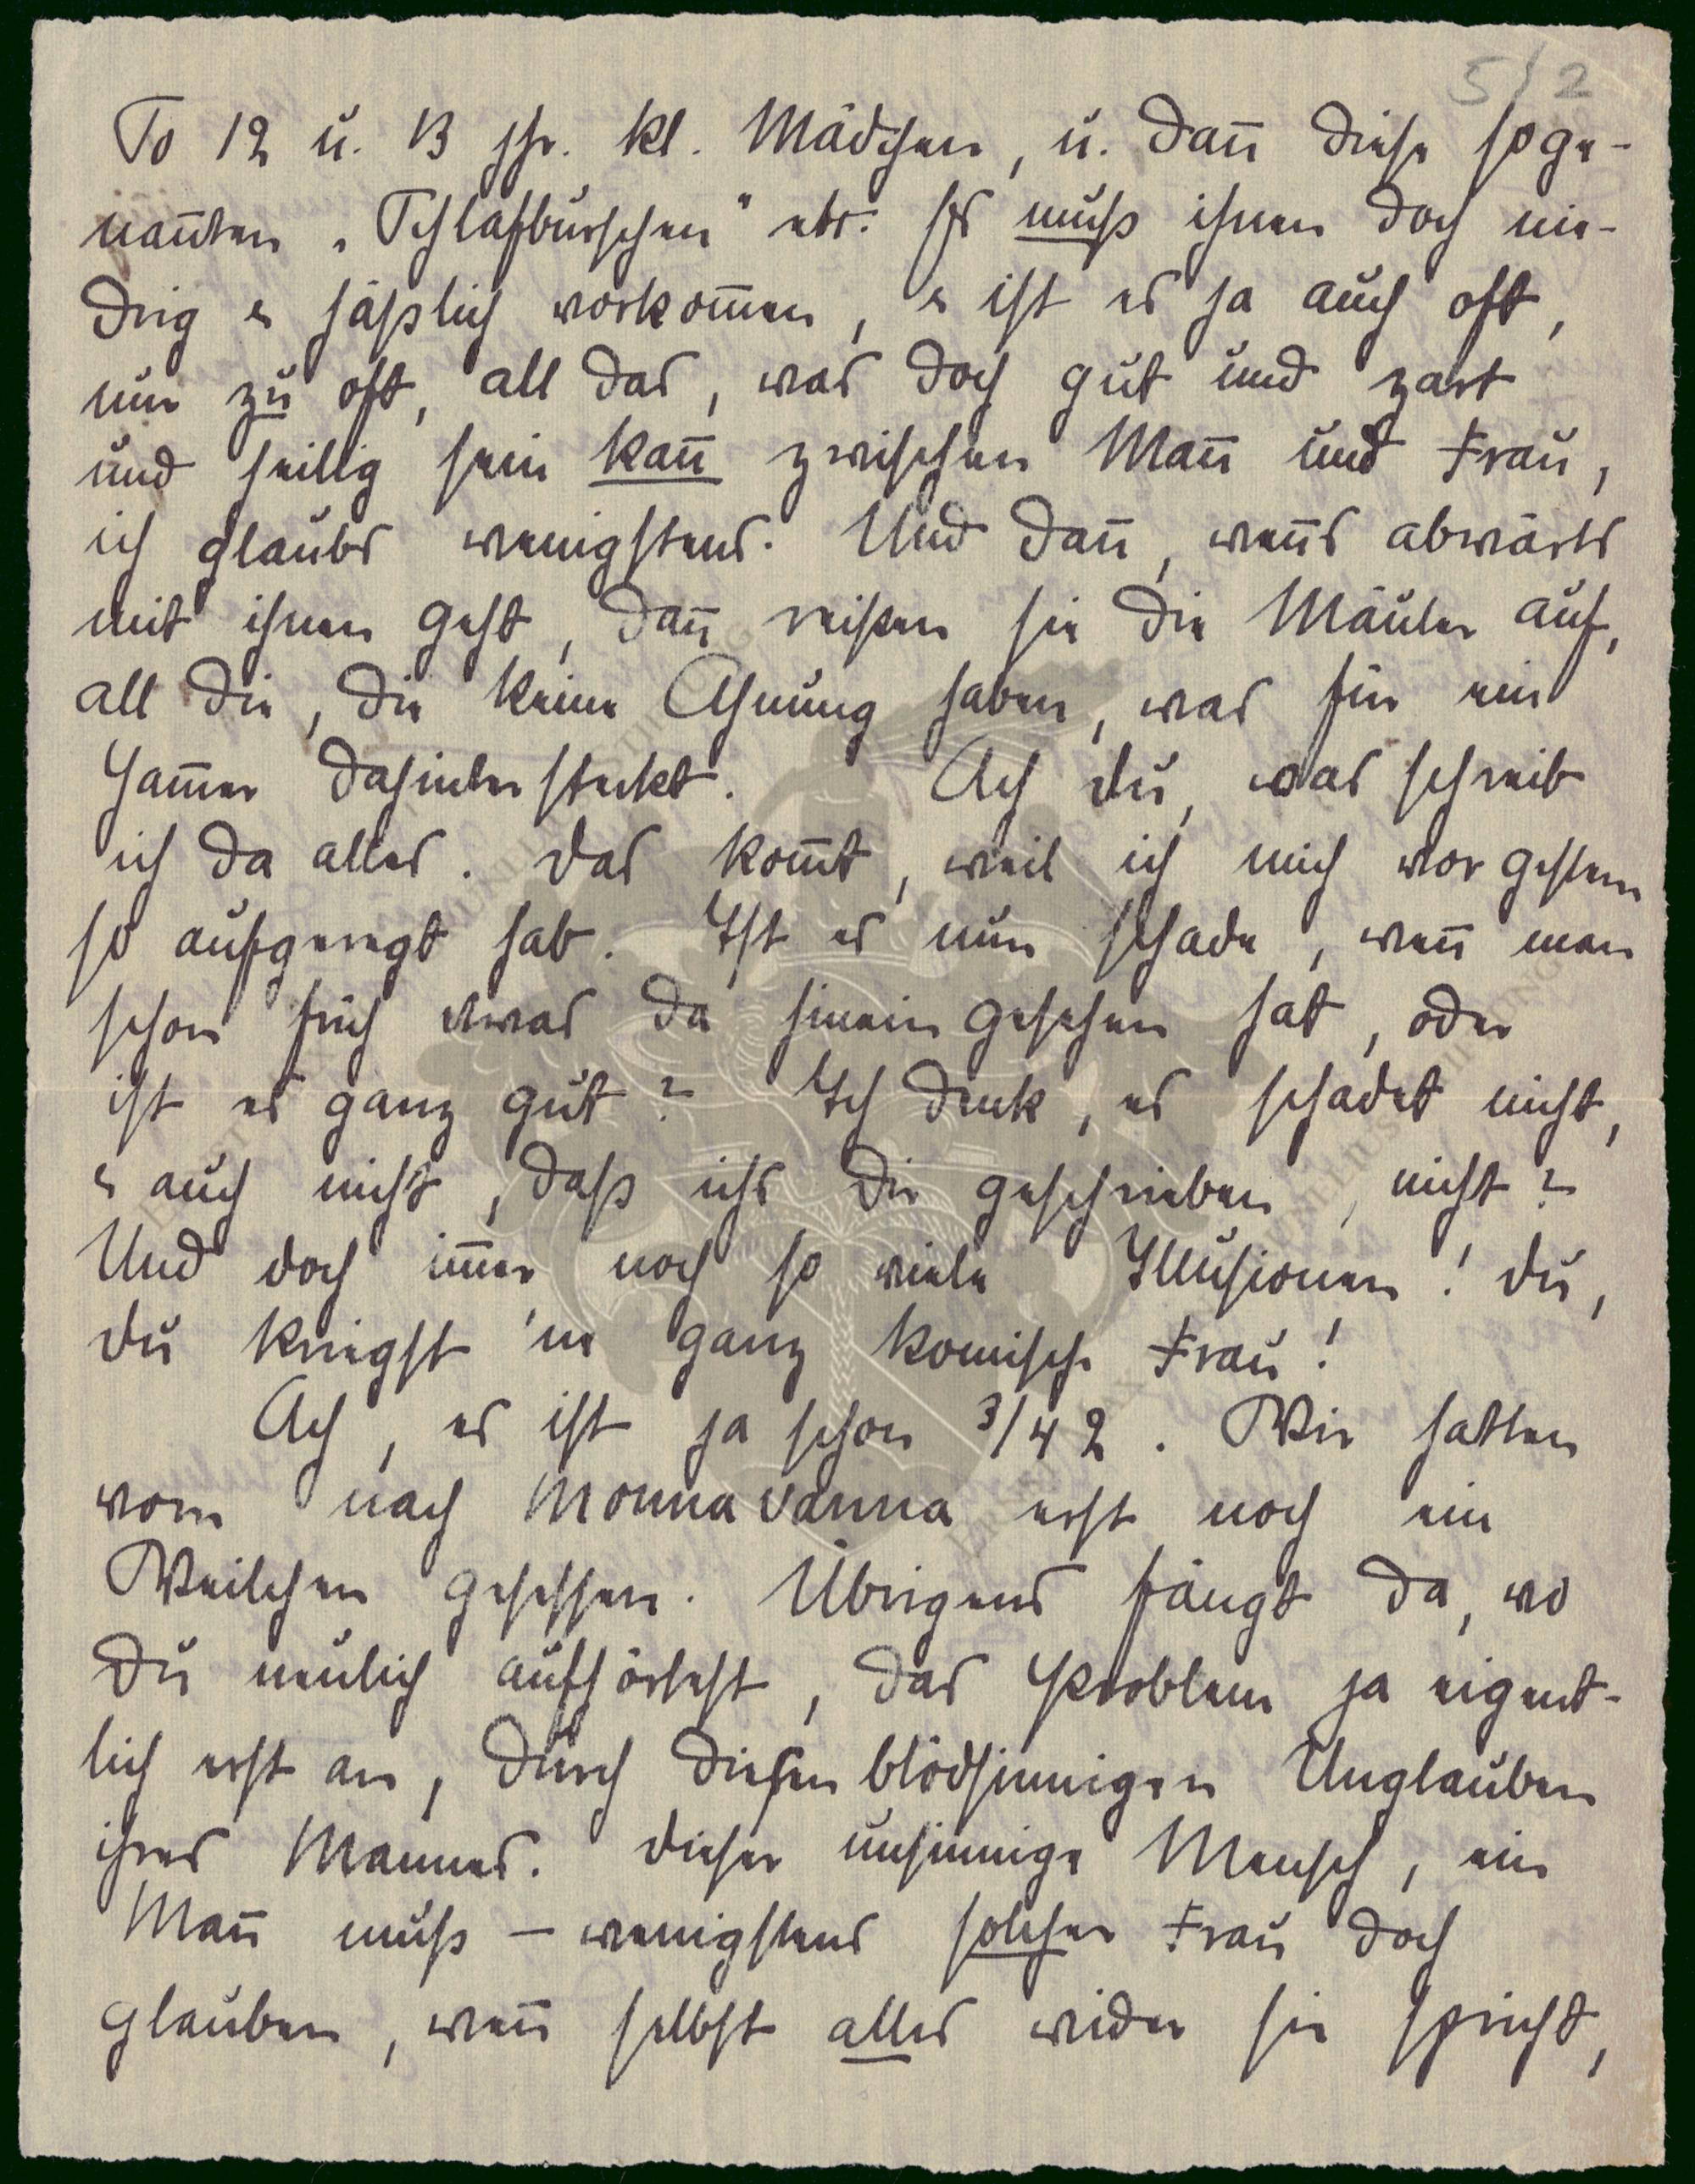 5/2
So 12 u. 13 jhr. kl. Mädchen, u. dan̄ diese soge-
nan̄ten „Schlafburschen" etc. Es muß ihnen doch nie-
drig & häßlich vorkom̄en, & ist es ja auch oft,
nur zu oft, all das, was doch gut und zart
und heilig sein kan̄ zwischen Man̄ und Frau,
ich glaubs wenigstens. Und dan̄, wen̄s abwärts
mit ihnen geht, dan̄ reißen sie die Mäuler auf,
all die, die keine Ahnung haben, was für ein
Jam̄er dahinter steckt. Ach du, was schreib
ich da alles. Das kom̄t, weil ich mich vor gestern
so aufgeregt hab. Ist es nun schade, wen̄ man
schon früh etwas da hinein gesehen hat, oder
ist es ganz gut? Ich denk, es schadet nicht,
& auch nicht, daß ichs dir geschrieben, nicht?
Und doch im̄er noch so viele Illusionen! Du,
du kriegst 'ne ganz komische Frau!
Ach, es ist ja schon 3/4 2. Wir hatten
vorn nach Monna Vanna erst noch ein
Weilchen gesessen. Übrigens fängt da, wo
du neulich aufhörtest, das Problem ja eigent-
lich erst an, durch diesen blödsinnigen Unglauben
ihres Mannes. Dieser unsinnige Mensch, ein
Man̄ muß – wenigstens solcher Frau doch
glauben, wen̄ selbst alles wider sie spricht,